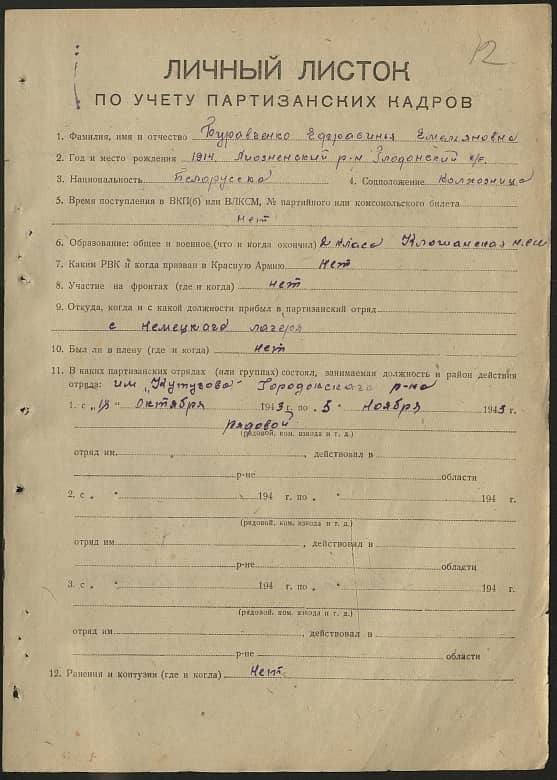 12
ЛИЧНЫЙ ЛИСТОК
ПО УЧЕТУ ПАРТИЗАНСКИХ КАДРОВ
1. Фамилия, имя и отчество Буравченко Ефрасинья Емельяновна
2. Год и место рождения 1914. Лиозненский р-н с/с.
3. Национальность Белорусска 4. Соцположение Колхозница
5. Время поступления в ВКП(б) или ВЛКСМ, № партийного или комсомольского билета
нет
6. Образование: общее и военное (что и когда окончил) 2 класса
7. Каким РВК и когда призван в Красную Армию нет
8. Участие на фронтах (где и когда) нет
9. Откуда, когда и с какой должности прибыл в партизанский отряд
с немецкого лагеря
10. Был ли в плену (где и когда) нет
11. В каких партизанских отрядах (или группах) состоял, занимаемая должность и район действия
отряда: им "Кутузова" Городокского р-на
1. с „18" Октября 1943 г. по „5" Ноября 1943 г.
рядовой
(рядовой, ком. взвода и т. д.)
отряд им. , действовал в
р-не области
2. с „ " 194 г. по „ " 194 г.
(рядовой, ком. взвода и т. д.)
отряд им , действовал в
р-не области
3. с „ " 194 г. по „ " 194 г.
(рядовой, ком. взвода и т. д.)
отряд им. , действовал в
р-не области
12. Ранения и контузии (где и когда) Нет.